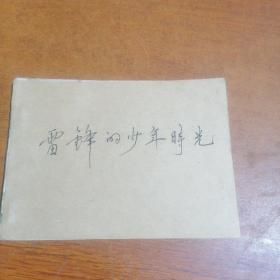 雷锋的少年時光